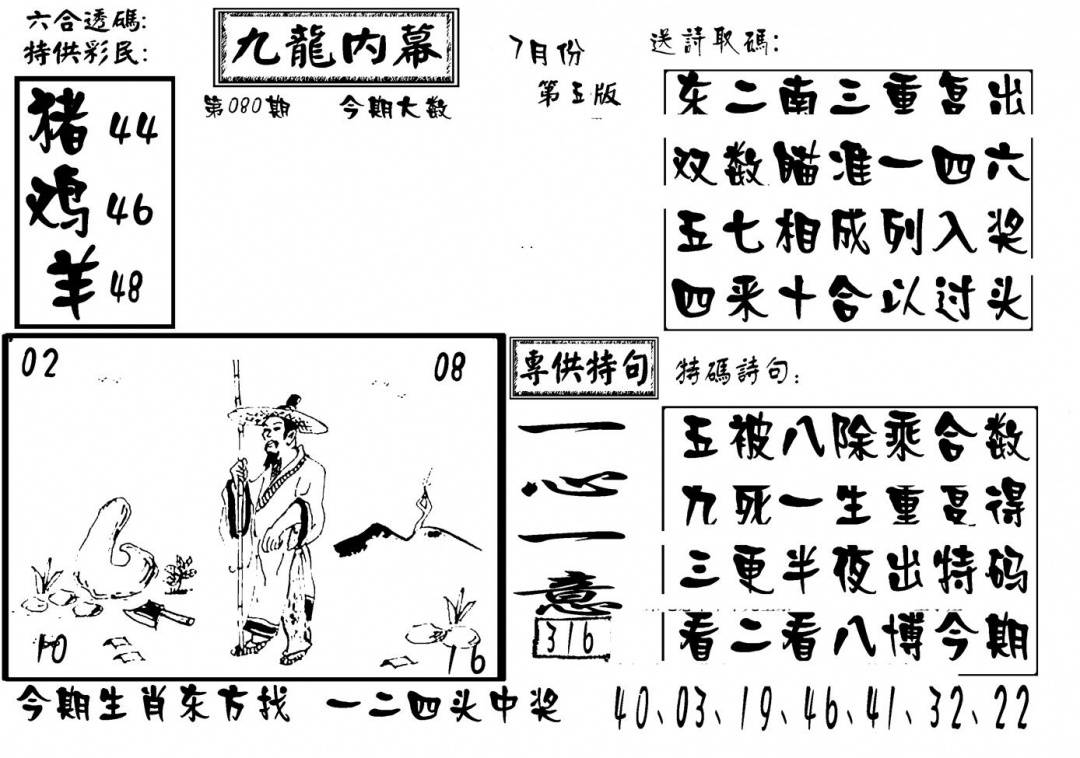 六合透碼:
特供彩民:
九龍内幕
第080期
今期大数
7月份
第五版
猪 44
鸡 46
羊 48
送詩取碼:
东二南三重复出
双数瞄准一四六
五七相成列入奖
四来十合以过头
02
08
10
16
專供特句
一心一意
316
特碼詩句:
五被八除乘合数
九死一生重复得
三更半夜出特码
看二看八博今期
今期生肖东方找 一二四头中奖
40、03、19、46、41、32、22